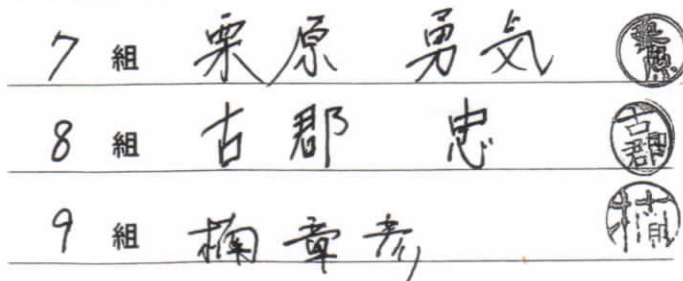 7 組 栗原 勇気
8 組 古郡 忠 古郡
9 組 楠 章彦